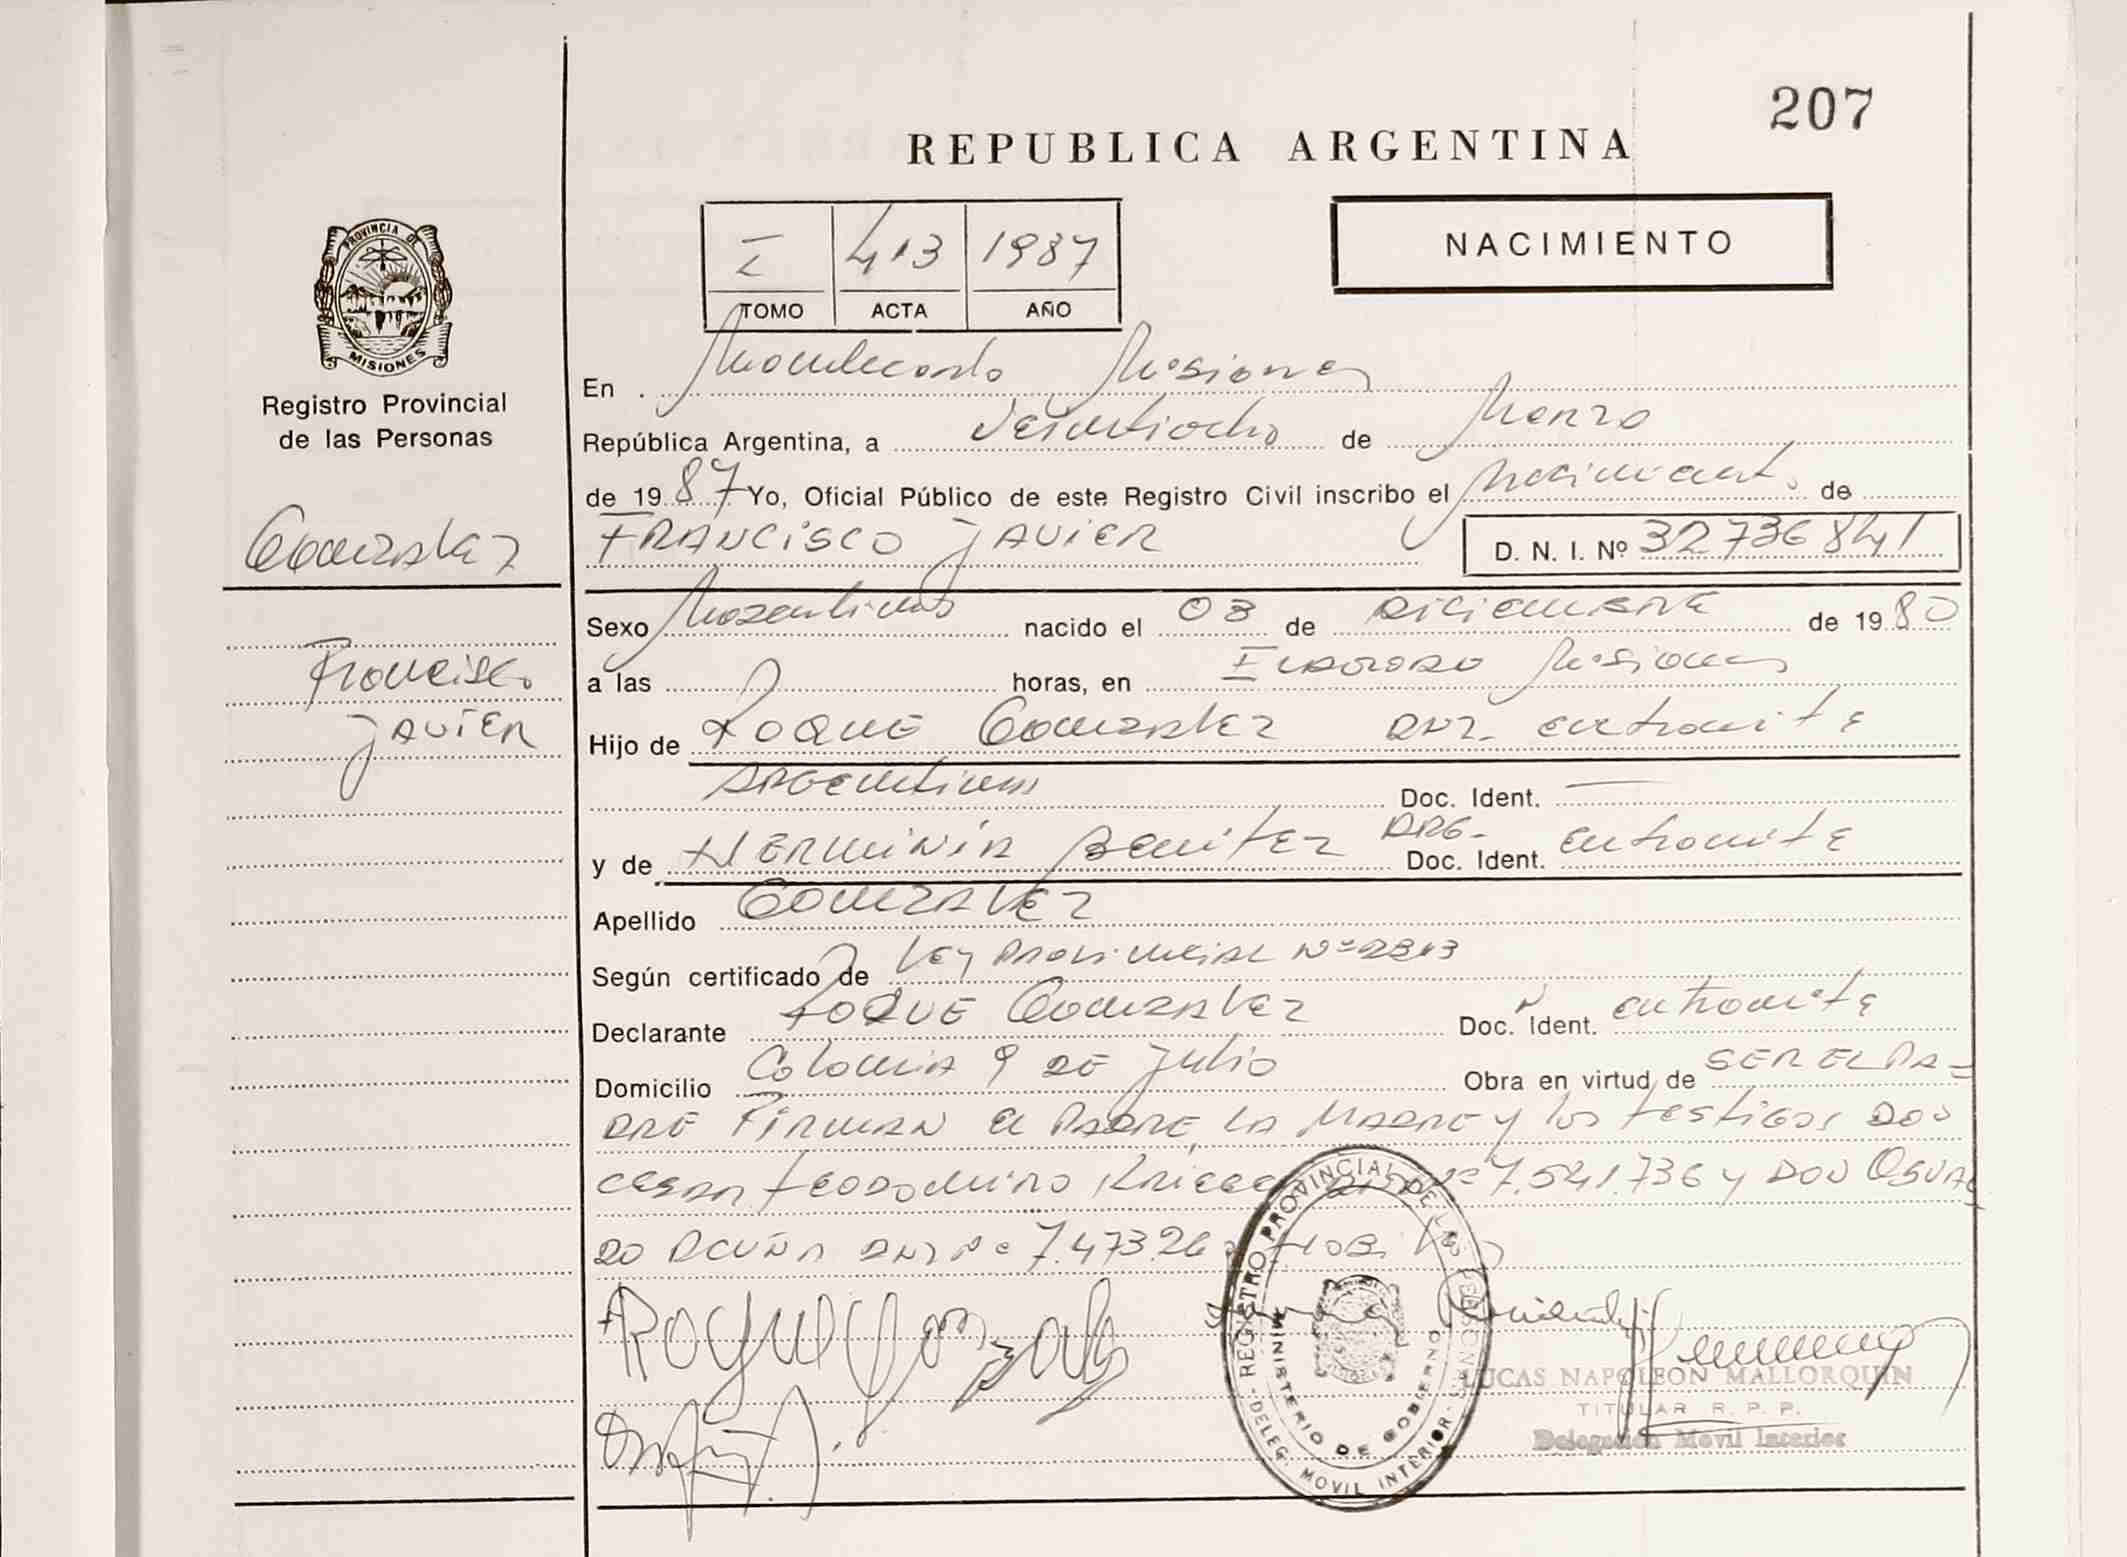 207
REPUBLICA ARGENTINA
I 413 1987
TOMO ACTA AÑO
NACIMIENTO
PROVINCIA DE
MISIONES
Registro Provincial
de las Personas
Gonzalez
Francisco
JAVIER
En Montecarlo Misiones
República Argentina, a Veintiocho de Marzo
de 1987 Yo, Oficial Público de este Registro Civil inscribo el Nacimiento de
FRANCISCO JAVIER D. N. I. Nº 32736841
Sexo Masculino nacido el 03 de DICIEMBRE de 1980
a las horas, en ELDORADO Misiones
Hijo de ROQUE GONZALEZ DNI- en tramite
ARGENTINOS Doc. Ident. —
y de HERMINIA BENITEZ ARG- Doc. Ident. en tramite
Apellido GONZALEZ
Según certificado de LEY PROVINCIAL Nº
Declarante ROQUE GONZALEZ Doc. Ident. en tramite
Domicilio Colonia 9 DE Julio Obra en virtud de SER EL PA-
DRE FIRMAN el PADRE, LA MADRE y los testigos DON
CESAR TEODOMIRO Nº 7.541.736 y DON OSVAL
DO ACUÑA DNI Nº
Roque Gonzalez
REGISTRO PROVINCIAL DE LAS PERSONAS
MINISTERIO DE GOBIERNO
- DELEG. MOVIL INTERIOR -
LUCAS NAPOLEON MALLORQUIN
TITULAR R. P. P.
Delegación Movil Interior